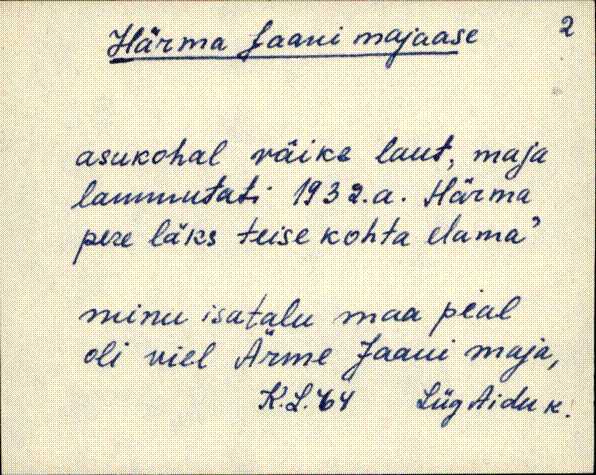 2
Härma Jaani majaase
asukohal väike laut, maja
lammutati 1932.a. Härma
pere läks teise kohta elama?
minu isatalu maa pial
oli viel Ärme Jaani maja,
K.L. 64 Lüg Aidu k.